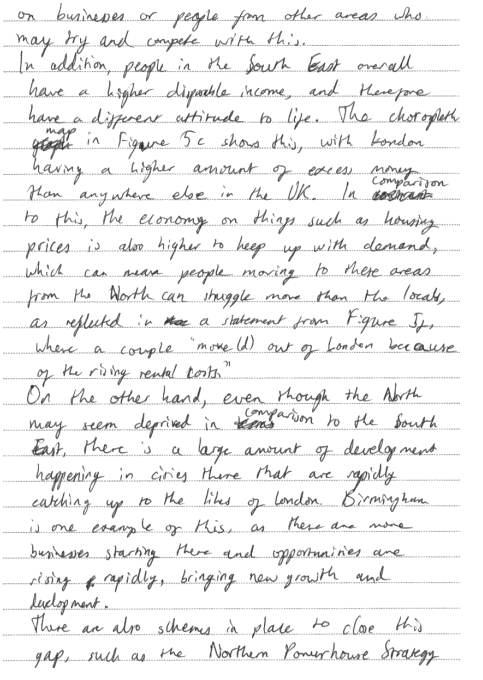 on businesses or people from other areas who
may try and compete with this.
In addition, people in the South East overall
have a higher disposable income, and therefore
have a different attitude to life. The choropleth
map in Figure 5c shows this, with London
having a higher amount of excess money
than anywhere else in the UK. In comparison
to this, the economy on things such as housing
prices is also higher to keep up with demand,
which can mean people moving to these areas
from the North can struggle more than the locals,
as reflected in a statement from Figure 5f,
where a couple "move(d) out of London because
of the rising rental costs"
On the other hand, even though the North
may seem deprived in comparison to the South
East, there is a large amount of development
happening in cities there that are rapidly
catching up to the likes of London. Birmingham
is one example of this, as there are more
businesses starting there and opportunities are
rising rapidly, bringing new growth and
development.
There are also schemes in place to close this
gap, such as the Northern Powerhouse Strategy